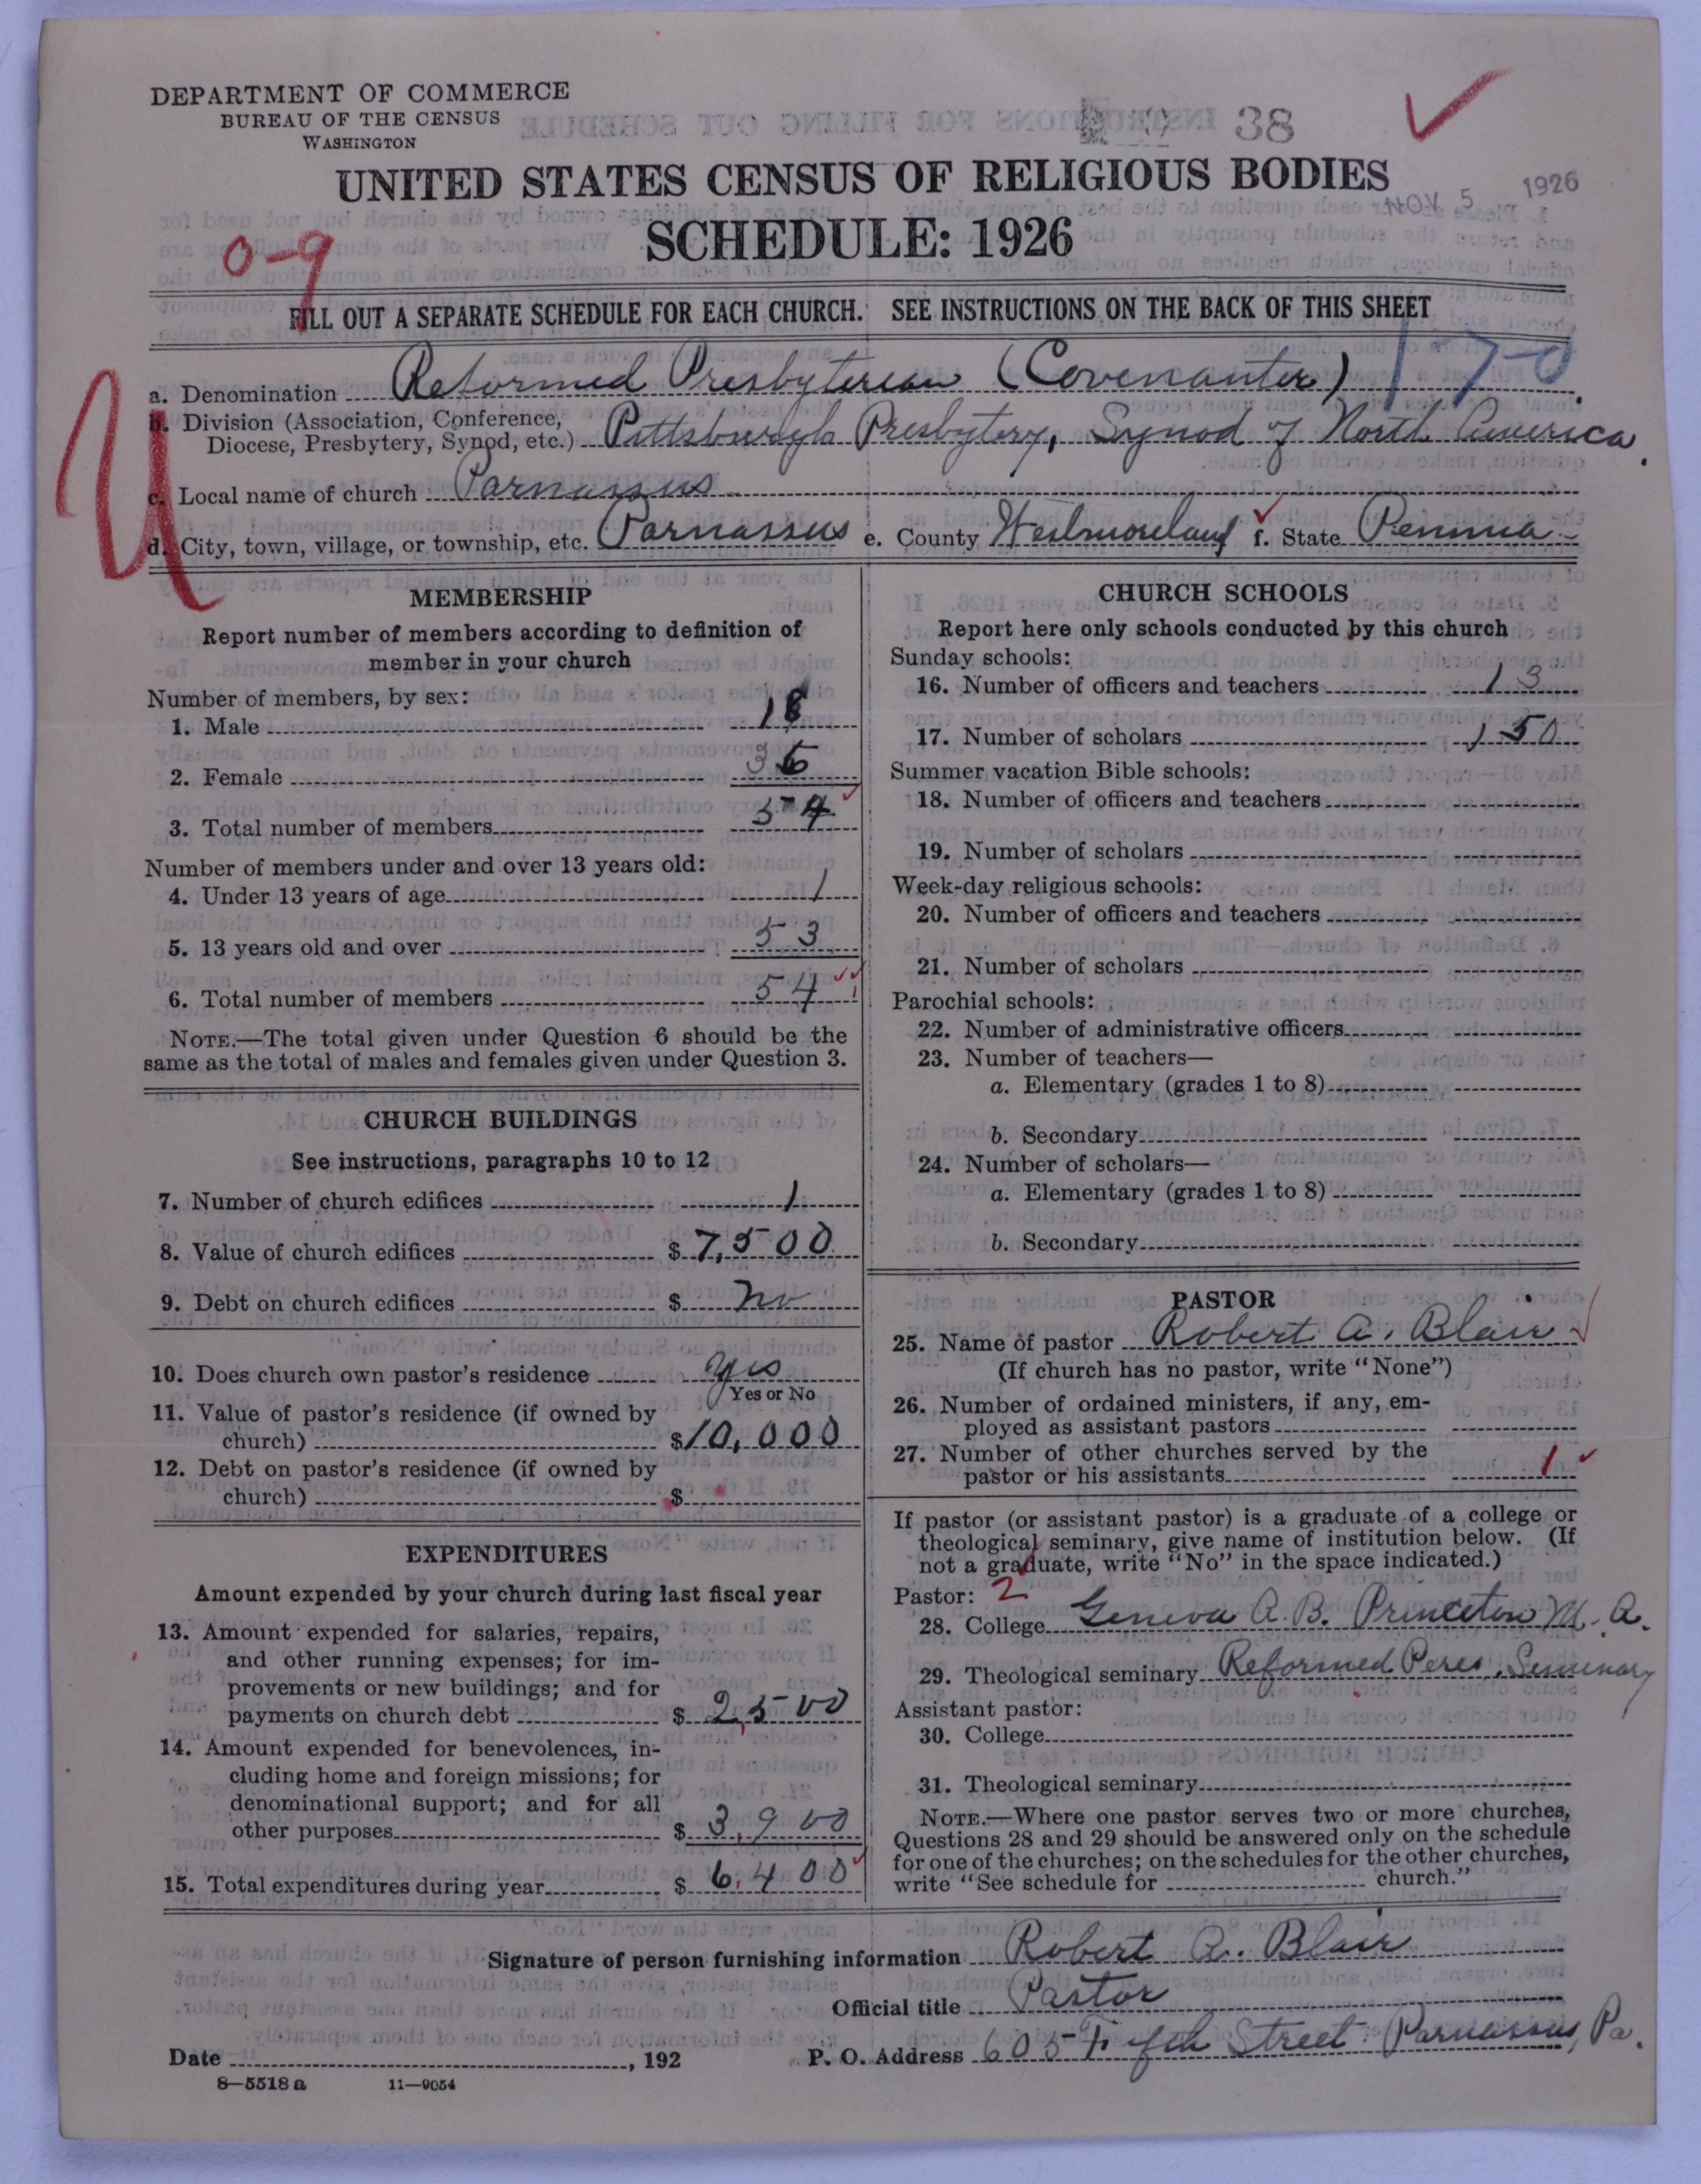 DEPARTMENT OF COMMERCE
BUREAU OF THE CENSUS
WASHINGTON
38
UNITED STATES CENSUS OF RELIGIOUS BODIES
NOV. 5 1926
SCHEDULE: 1926
0-9
FILL OUT A SEPARATE SCHEDULE FOR EACH CHURCH. SEE INSTRUCTIONS ON THE BACK OF THIS SHEET
a. Denomination Reformed Presbyterian (Covenanter) 170
b. Division (Association, Conference,
Diocese, Presbytery, Synod, etc.) Pittsburgh Presbytery, Synod of North America.
c. Local name of church Parnassus
d. City, town, village, or township, etc. Parnassus e. County Westmoreland f. State Penna
U
MEMBERSHIP
Report number of members according to definition of
member in your church
Number of members, by sex:
1. Male 18
2. Female 36
3. Total number of members 54
Number of members under and over 13 years old:
4. Under 13 years of age 1
5. 13 years old and over 53
6. Total number of members 54
NOTE.—The total given under Question 6 should be the
same as the total of males and females given under Question 3.
CHURCH BUILDINGS
See instructions, paragraphs 10 to 12
7. Number of church edifices 1
8. Value of church edifices $ 7,500
9. Debt on church edifices $ no
10. Does church own pastor's residence yes
Yes or No
11. Value of pastor's residence (if owned by
church) $ 10,000
12. Debt on pastor's residence (if owned by
church) $
EXPENDITURES
Amount expended by your church during last fiscal year
13. Amount expended for salaries, repairs,
and other running expenses; for im-
provements or new buildings; and for
payments on church debt $ 2,500
14. Amount expended for benevolences, in-
cluding home and foreign missions; for
denominational support; and for all
other purposes $ 3,900
15. Total expenditures during year $ 6,400
CHURCH SCHOOLS
Report here only schools conducted by this church
Sunday schools:
16. Number of officers and teachers 13
17. Number of scholars 150
Summer vacation Bible schools:
18. Number of officers and teachers
19. Number of scholars
Week-day religious schools:
20. Number of officers and teachers
21. Number of scholars
Parochial schools:
22. Number of administrative officers
23. Number of teachers—
a. Elementary (grades 1 to 8)
b. Secondary
24. Number of scholars—
a. Elementary (grades 1 to 8)
b. Secondary
PASTOR
25. Name of pastor Robert A. Blair
(If church has no pastor, write "None")
26. Number of ordained ministers, if any, em-
ployed as assistant pastors
27. Number of other churches served by the
pastor or his assistants 1
If pastor (or assistant pastor) is a graduate of a college or
theological seminary, give name of institution below. (If
not a graduate, write "No" in the space indicated.)
Pastor: 2
28. College Geneva A.B. Princeton M.A.
29. Theological seminary Reformed Pres. Seminary
Assistant pastor:
30. College
31. Theological seminary
NOTE.—Where one pastor serves two or more churches,
Questions 28 and 29 should be answered only on the schedule
for one of the churches; on the schedules for the other churches,
write "See schedule for church."
Signature of person furnishing information Robert A. Blair
Official title Pastor
Date , 192 P. O. Address 605 Fifth Street Parnassus, Pa.
8—5518 a 11—9054